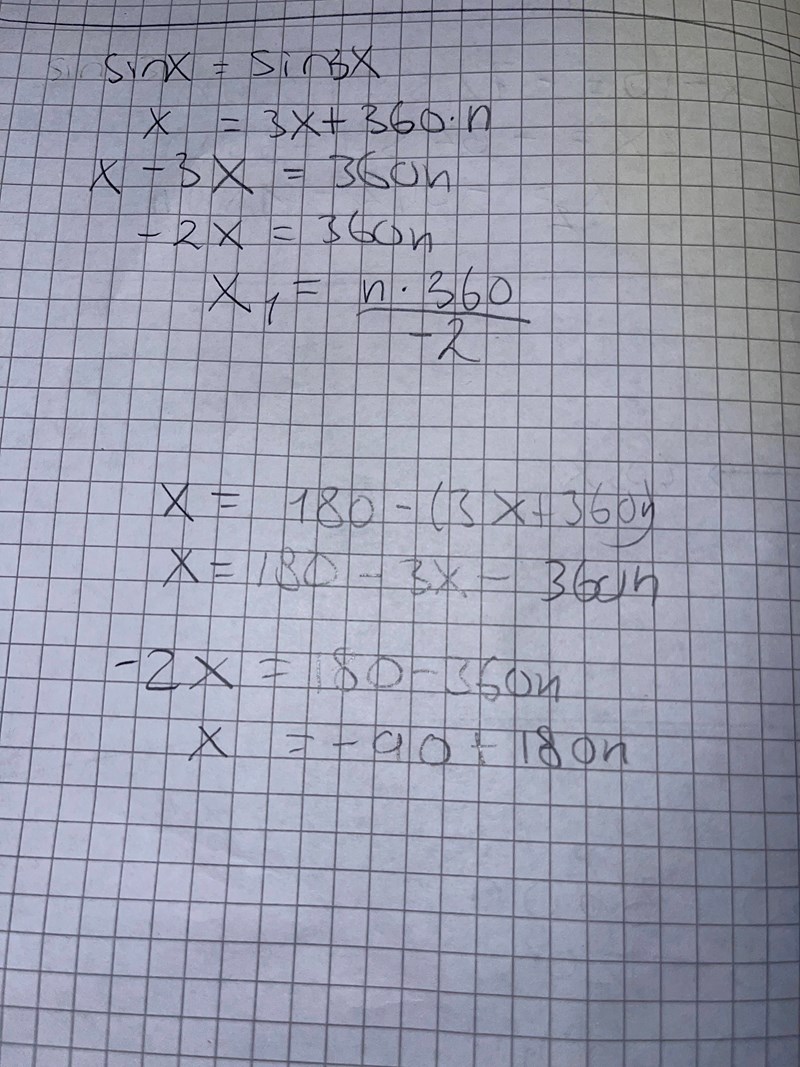 sinx = sin3x
x = 3x + 360·n
x - 3x = 360n
-2x = 360n
x₁ = n · 360
-2
x = 180 - (3x + 360n)
x = 180 - 3x - 360n
-2x = 180 - 360n
x = -90 + 180n